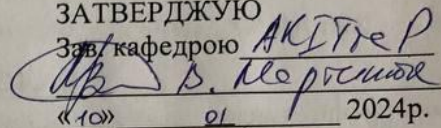 ЗАТВЕРДЖУЮ
Зав. кафедрою АКІТтаР
В.
«10» 01 2024р.